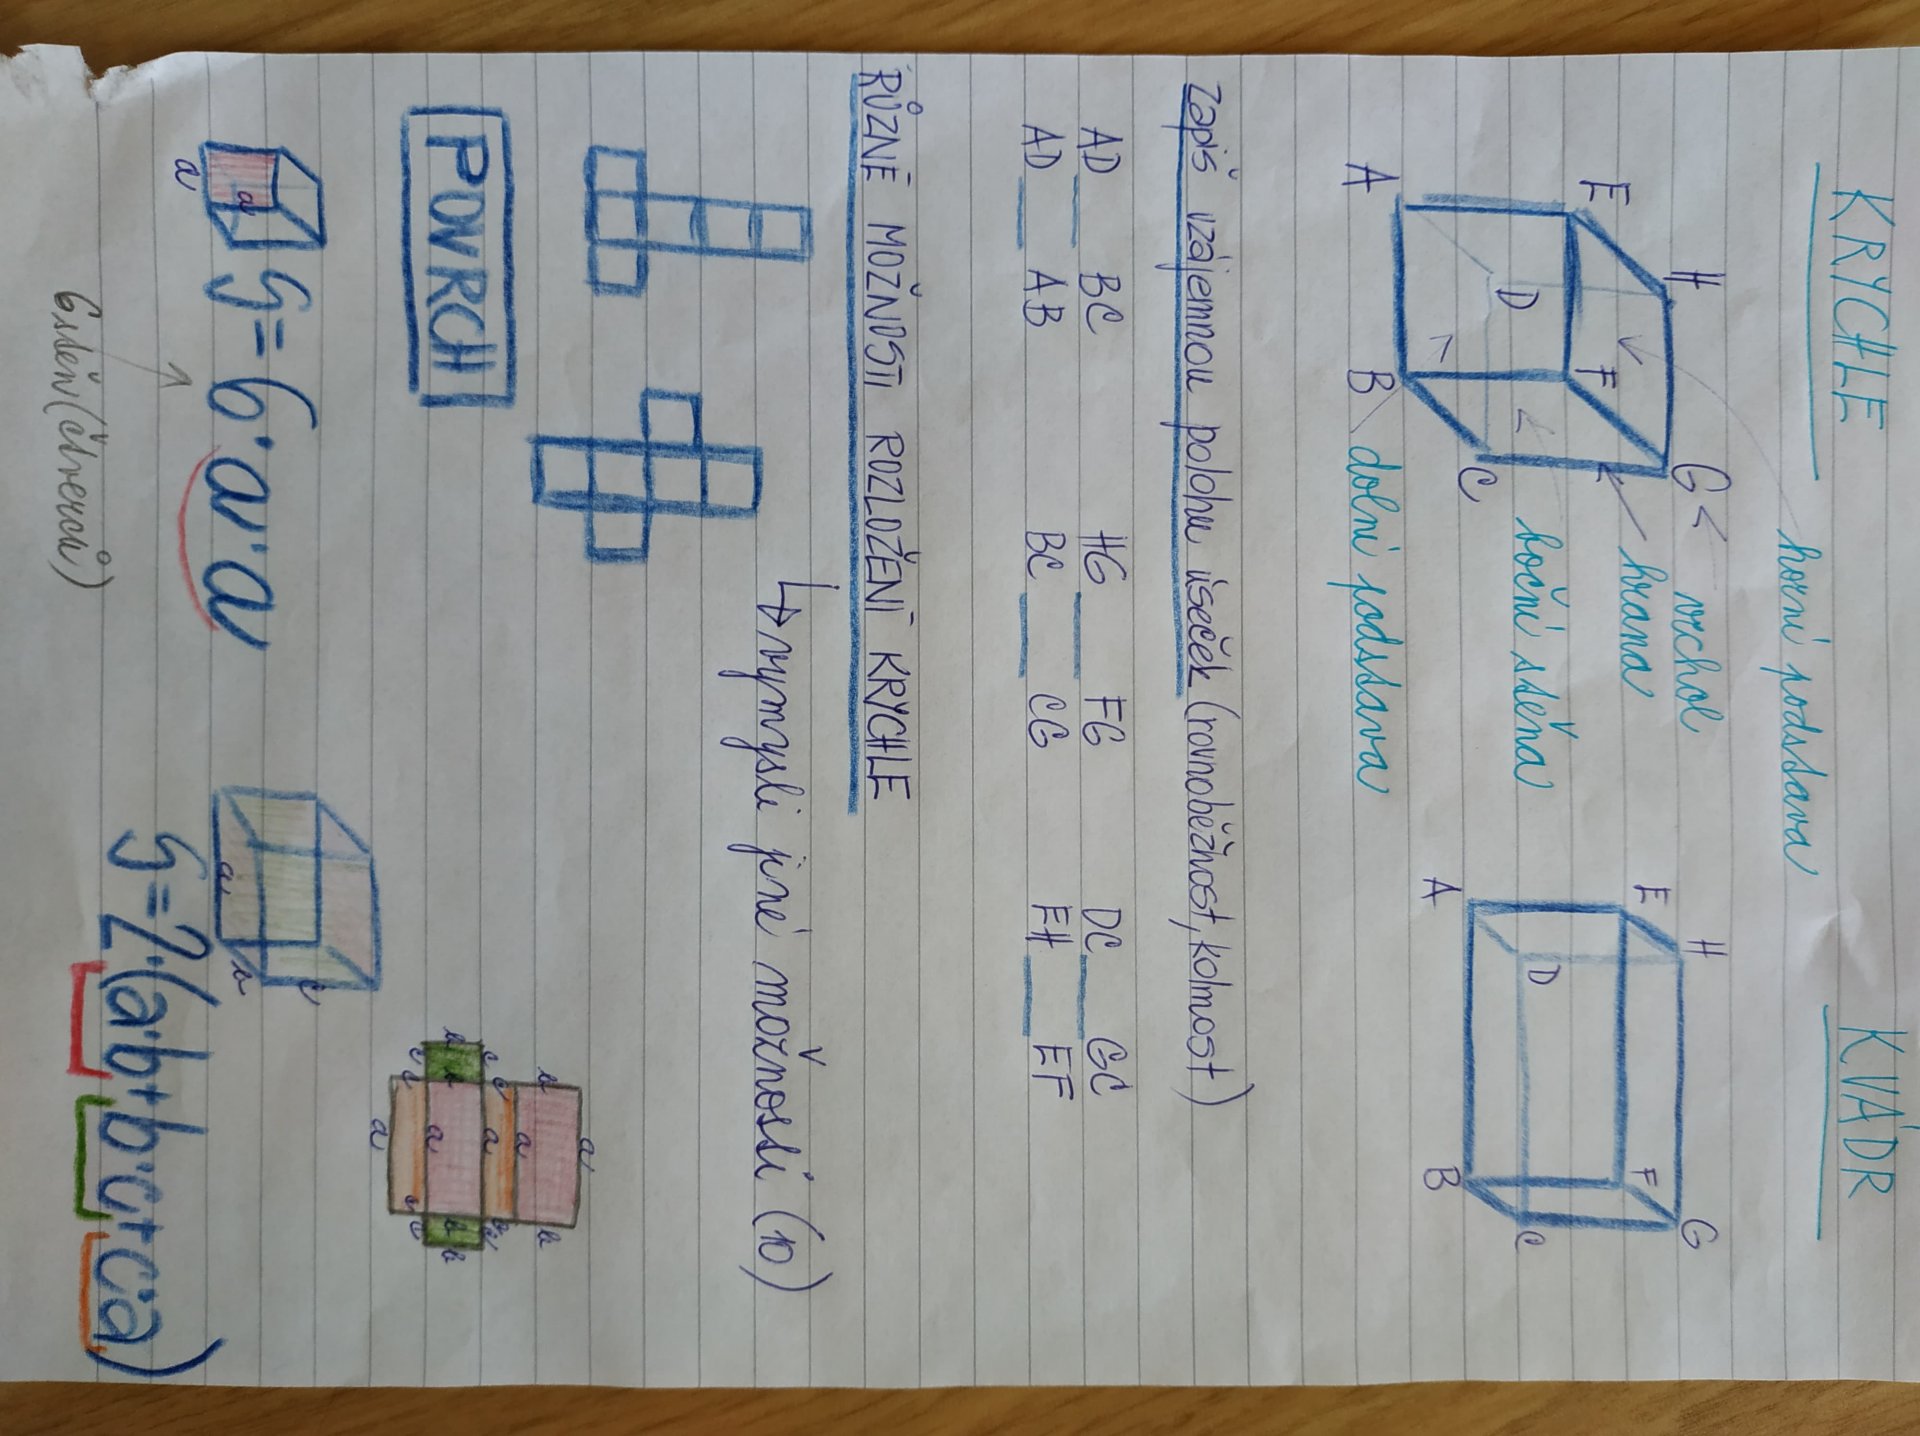 KRYCHLE
KVÁDR
horní podstava
H
G
vrchol
E
F
hrana
D
boční stěna
C
A
B
dolní podstava
H
G
E
F
D
C
A
B
Zapiš vzájemnou polohu úseček (rovnoběžnost, kolmost)
AD ___ BC HG ___ FG DC ___ GC
AD ___ AB BC ___ CG EH ___ EF
RŮZNÉ MOŽNOSTI ROZLOŽENÍ KRYCHLE
↳ vymysli jiné možnosti (10)
POVRCH
a
b b
c c
a
a
b b b b
a
c c
a
a
a
S = 6·a·a
6 stěn (čtverců)
a
b
c
S = 2·(a·b + b·c + c·a)